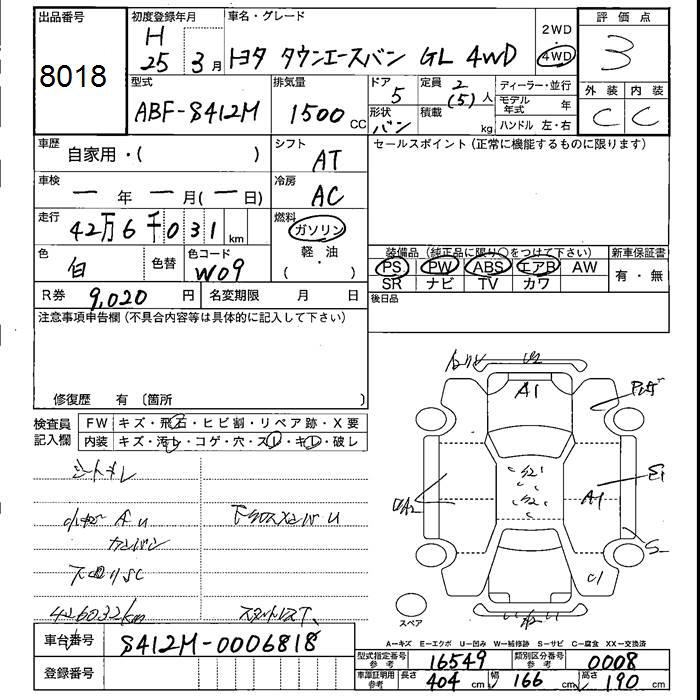 出品番号
8018
初度登録年月
H
25 3月
車名・グレード
トヨタ タウンエースバン GL 4WD
2WD
・
4WD
評価点
3
外装 内装
C C
型式
ABF-S412M
排気量
1500 CC
ドア
5
形状
バン
定員 2
(5) 人
積載
kg
ディーラー・並行
モデル年式 年
ハンドル 左・右
車歴
自家用・( )
シフト
AT
セールスポイント (正常に機能するものに限ります)
車検
ー 年 ー 月(ー 日)
冷房
AC
走行
42万6千031 km
燃料
ガソリン
軽・油
( )
色
白
色替
色コード
W09
装備品 (純正品に限り○をつけて下さい)
PS PW ABS エアB AW
SR ナビ TV カワ
新車保証書
有・無
R券 9,020 円
名変期限 月 日
後日品
注意事項申告欄 (不具合内容等は具体的に記入して下さい)
修復歴 有 〔箇所 〕
検査員
記入欄
FW キズ・飛石・ヒビ割・リペア跡・X要
内装 キズ・汚レ・コゲ・穴・スレ・キレ・破レ
シートキレ
426032km
A1
A1
S2
S2
UA2
E1
S
C1
スペア
A―キズ E―エクボ U―凹み W―補修跡 S―サビ C―腐食 XX―交換済
車台番号
S412M-0006818
登録番号
型式指定番号
参考
16549
類別区分番号
参考
0008
車庫証明用
参考
長さ 404 cm
幅 166 cm
高さ 190 cm